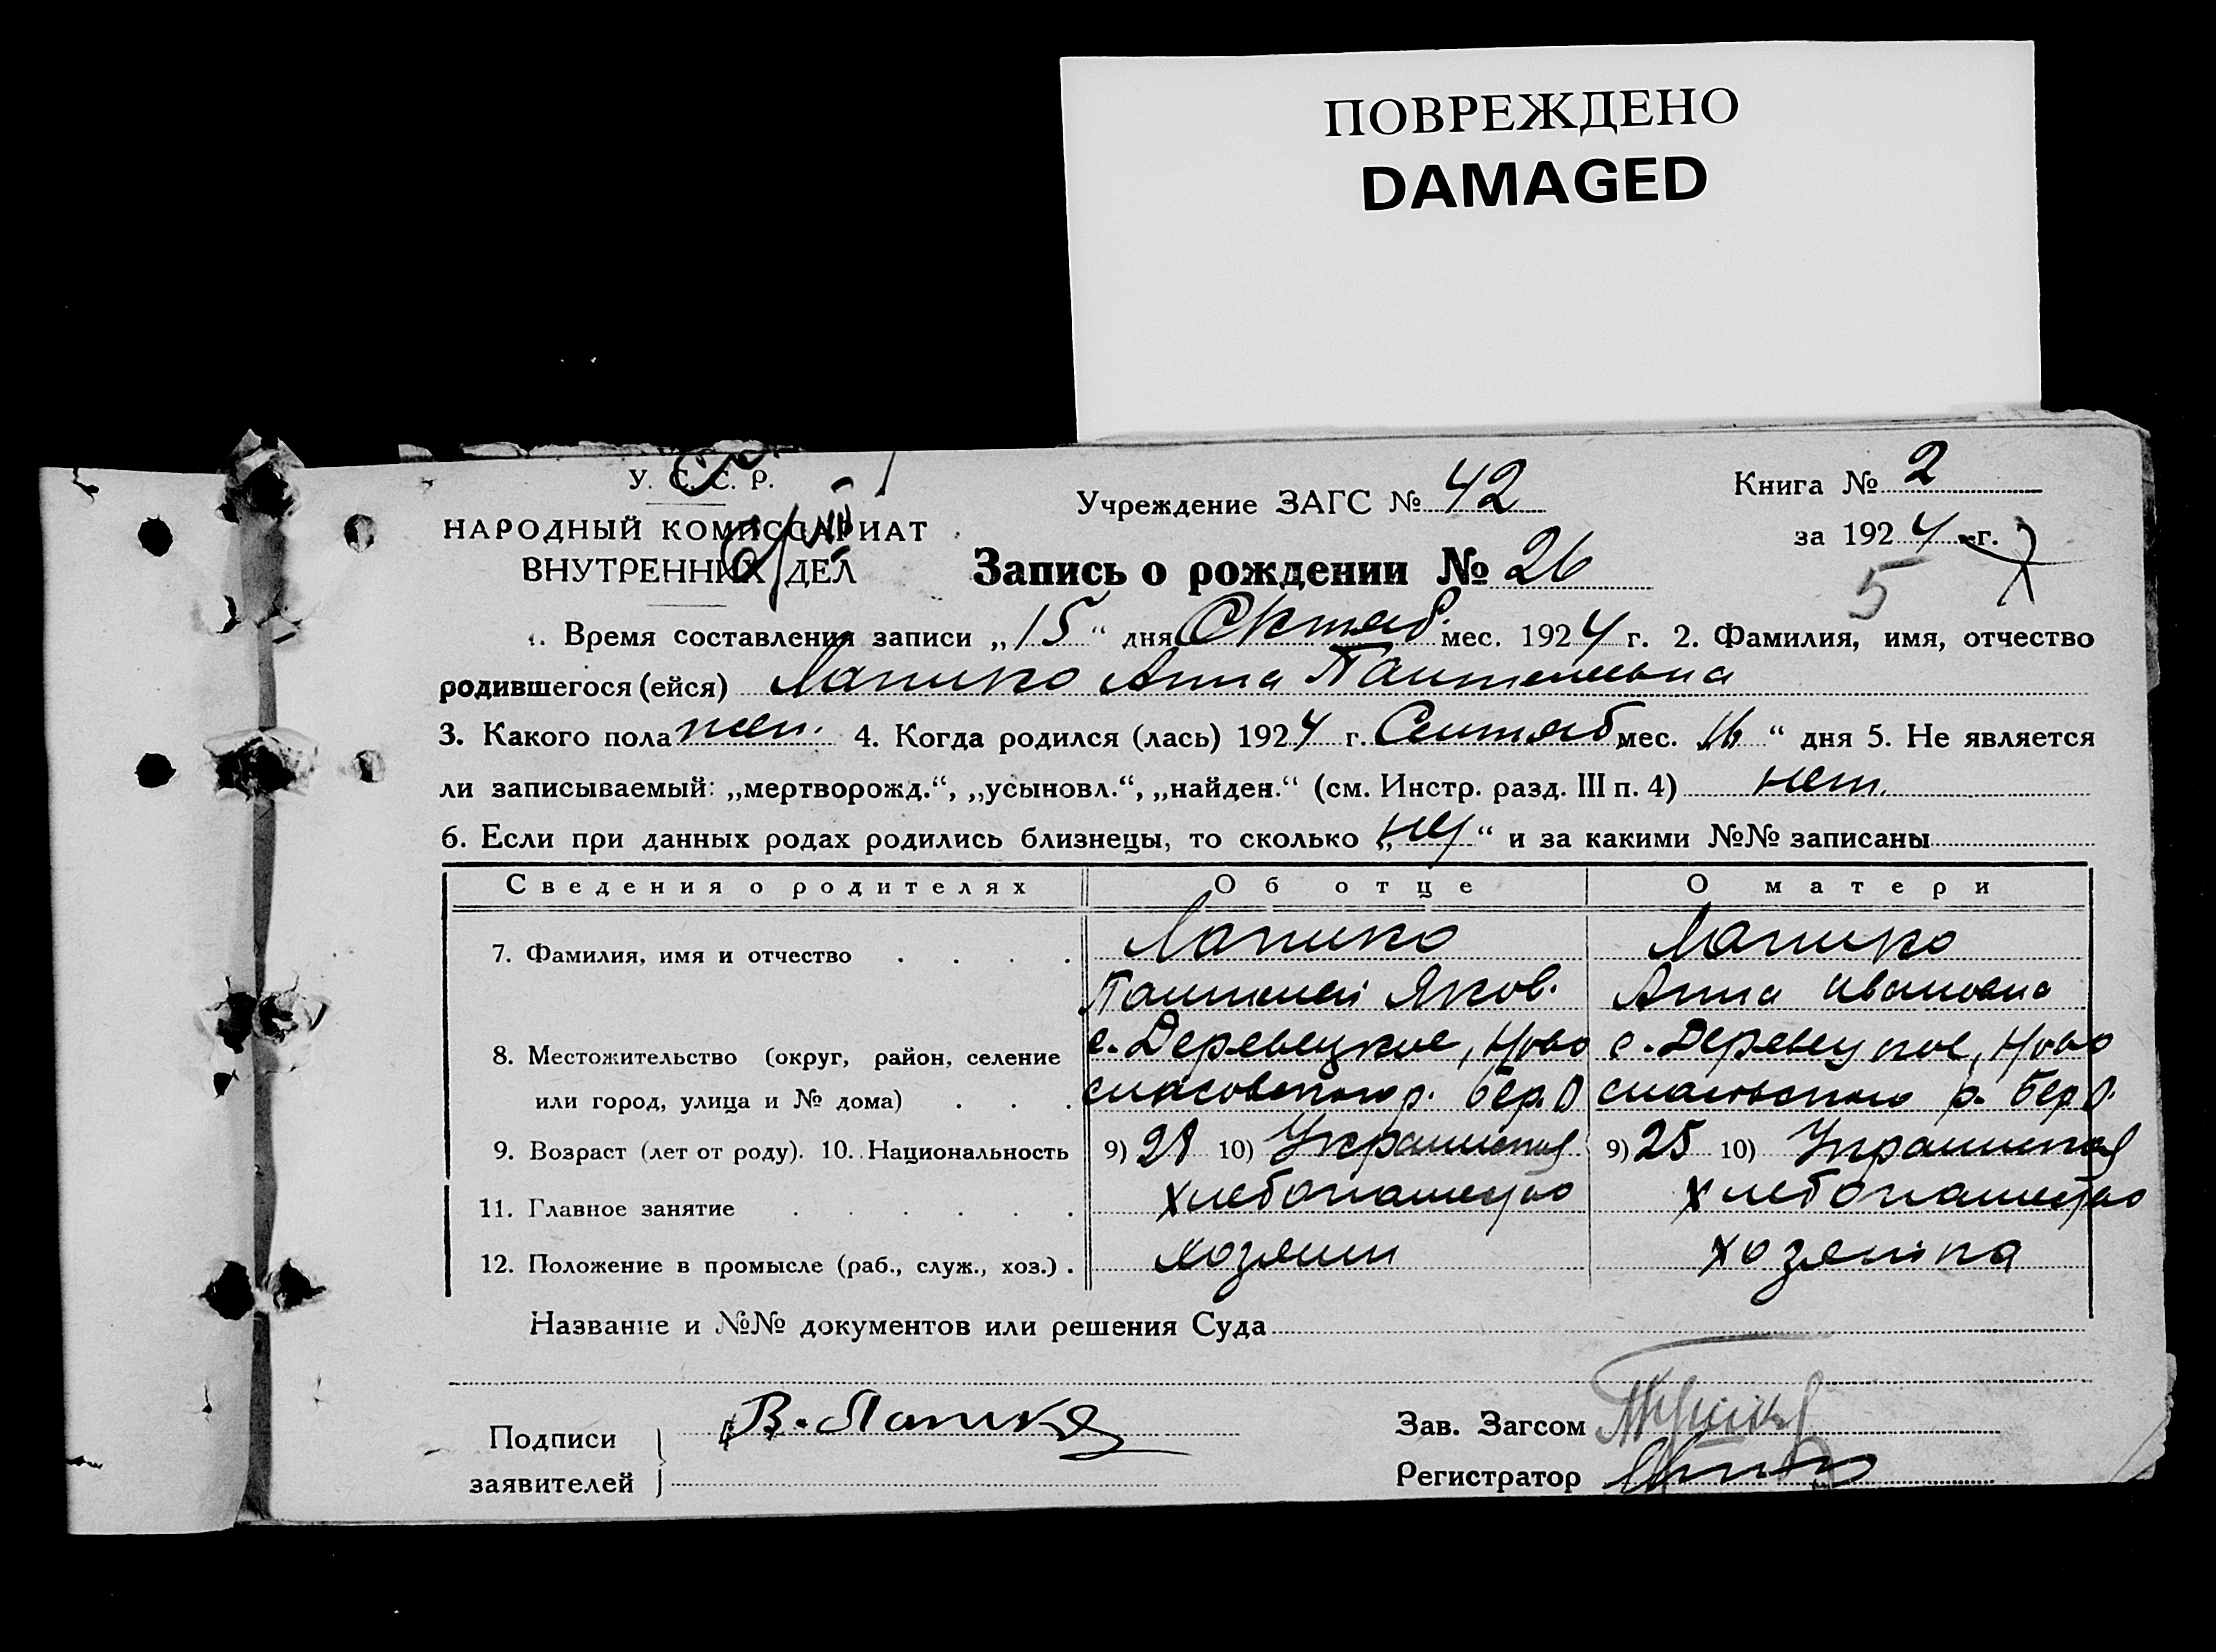 ПОВРЕЖДЕНО
DAMAGED
У. С. С. Р.
НАРОДНЫЙ КОМИССАРИАТ
ВНУТРЕННИХ ДЕЛ
Учреждение ЗАГС № 42
Книга № 2
за 1924 г.
5
Запись о рождении № 26
1. Время составления записи „15“ дня Октяб. мес. 1924 г. 2. Фамилия, имя, отчество
родившегося (ейся) Лапико Анна Пантелеевна
3. Какого пола жен. 4. Когда родился (лась) 1924 г. Сентяб мес. „16“ дня 5. Не является
ли записываемый: „мертворожд.“, „усыновл.“, „найден.“ (см. Инстр. разд. III п. 4) нет.
6. Если при данных родах родились близнецы, то сколько „ “ и за какими №№ записаны
Сведения о родителях Об отце О матери
7. Фамилия, имя и отчество Лапико Лапико
Пантелей Яков. Анна Ивановна
8. Местожительство (округ, район, селение с. Деревецкое, Ново с. Деревецкое, Ново
или город, улица и № дома) спасовского р. Бер. О спасовского р. Бер. О.
9. Возраст (лет от роду). 10. Национальность 9) 28 10) Украинская 9) 25 10) Украинская
11. Главное занятие хлебопашество хлебопашество
12. Положение в промысле (раб., служ., хоз.) хозяин хозяйка
Название и №№ документов или решения Суда
Подписи В. Лапико
заявителей
Зав. Загсом
Регистратор